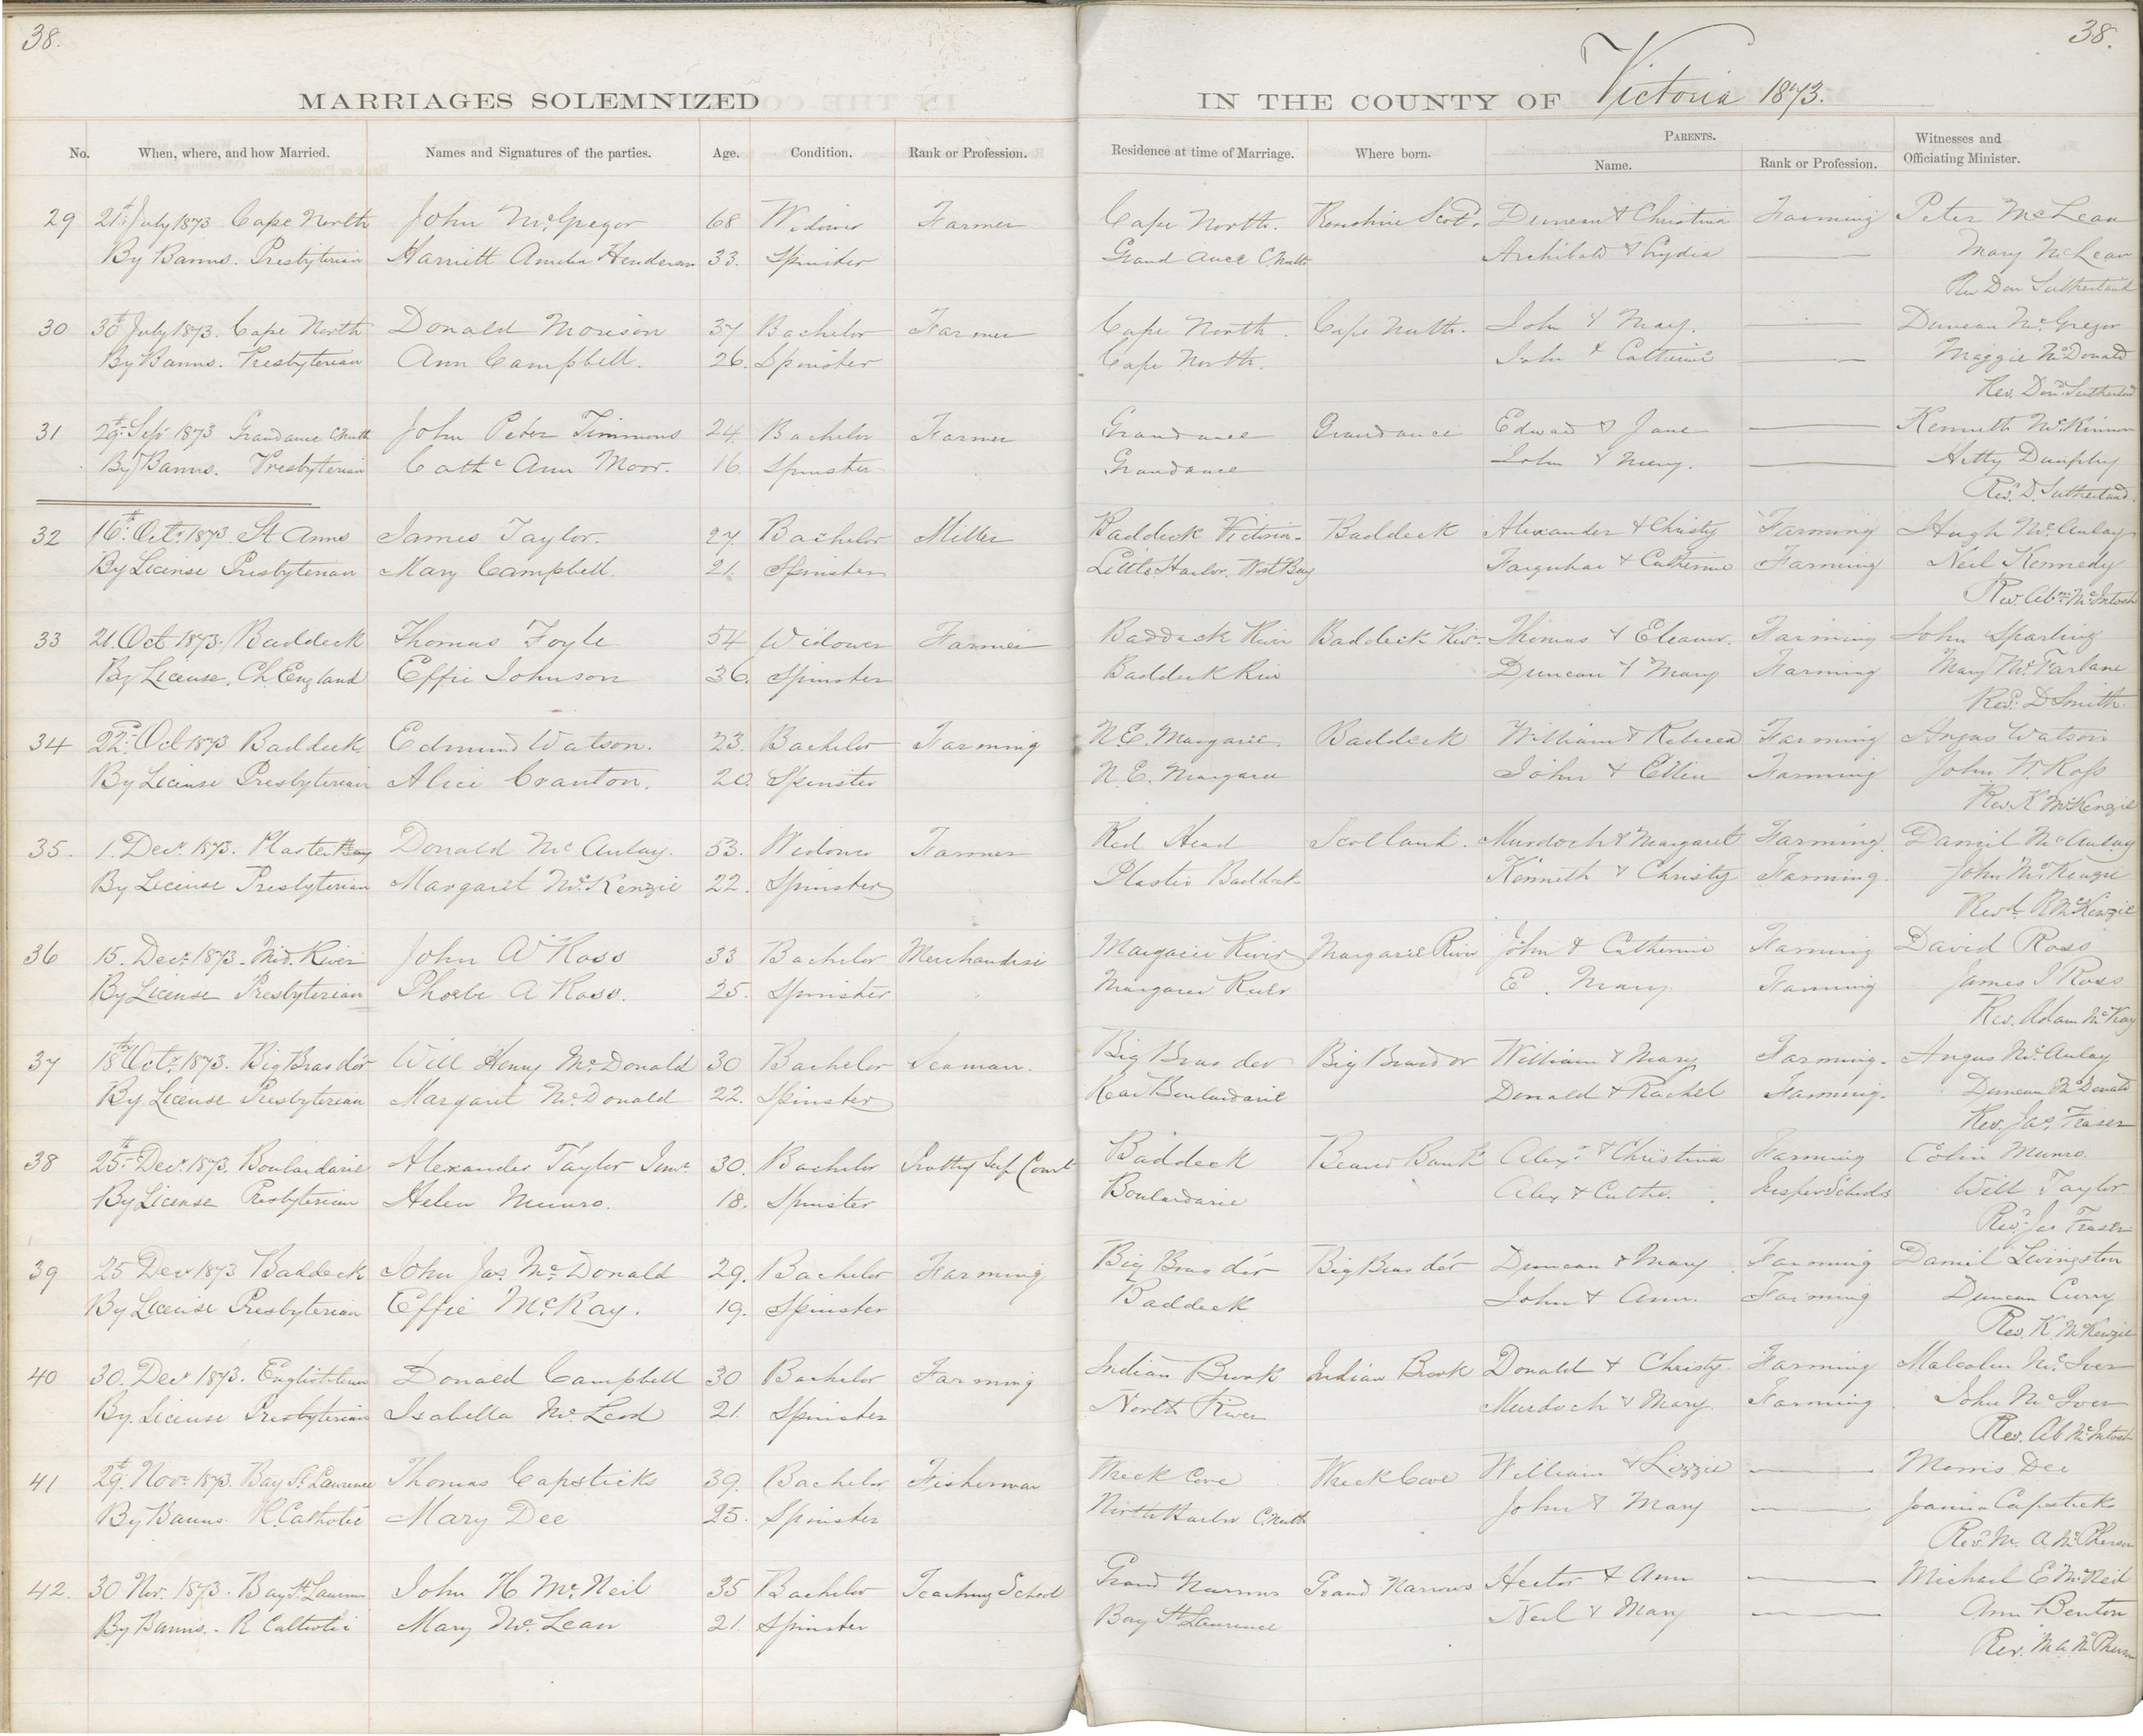 38.
38.
MARRIAGES SOLEMNIZED
IN THE COUNTY OF Victoria 1873.
No. When, where, and how Married. Names and Signatures of the parties. Age. Condition. Rank or Profession. Residence at time of Marriage. Where born. PARENTS. Name. Rank or Profession. Witnesses and Officiating Minister.
29 21st July 1873 Cape North John McGregor 68 Widower Farmer Cape North. Scotd. Duncan & Christina Farming Peter McLean
By Banns. Presbyterian Harriett Amelia Henderson 33. Spinster Grand ance C. North Archibald & Lydia Mary McLean
Rev Don Sutherland
30 30th July 1873. Cape North Donald Morison 37 Bachelor Farmer Cape North. Cape North. John & Mary. Duncan McGregor
By Banns. Presbyterian Ann Campbell. 26. Spinster Cape North. John & Catherine Maggie McDonald
Rev. Dond. Sutherland
31 29th Sept 1873 Grandance C North John Peter Timmons 24. Bachelor Farmer Grandance Grandance Edward & Jane Kenneth McKinnon
By Banns. Presbyterian Cathe Ann Moor. 16. Spinster Grandance John & Mary. Hetty Dunphy
Revd. D. Sutherland.
32 16th Octr 1873 St Anns James Taylor. 27. Bachelor Miller Baddeck Victoria. Baddeck Alexander & Christy Farming Hugh McAulay
By License Presbyterian Mary Campbell. 21. Spinster Little Harbor. West Bay Farquhar & Catherine Farming Neil Kennedy
Rev. Abm. McIntosh
33 21. Oct 1873. Baddeck Thomas Foyle 54 Widower Farmer Baddeck River Baddeck Rivr. Thomas & Eleanor. Farming John Sparling
By License. Ch. England Effie Johnson 36. Spinster Baddeck Rivr Duncan & Mary Farming Mary McFarlane
Revd. D Smith.
34 22d. Oct 1873 Baddeck Edmund Watson. 23. Bachelor Farming N.E. Margaree. Baddeck William & Rebecca Farming Angus Watson
By License Presbyterian Alice Cranton. 20. Spinster N.E. Margaree John & Ellen Farming John W. Ross
Rev. K McKenzie
35. 1. Decr. 1873. Plaster Bay Donald McAulay. 53. Widower Farmer Red Head Scotland. Murdoch & Margaret Farming. Daniel McAulay
By License Presbyterian Margaret McKenzie 22. Spinster Plaster Baddeck Kenneth & Christy Farming. John McKenzie
Revd. McKenzie
36 15. Decr. 1873. Mid. River John A Ross 33 Bachelor Merchandise Margaree River Margaree River John & Catherine Farming David Ross
By License Presbyterian Phoebe A Ross. 25. Spinster Margaree River E. Mary. Farming James I Ross
Rev. Adam McKay
37 18th Octr. 1873. Big Bras dór Will Henry McDonald 30 Bachelor Seaman. Big Bras dor Big Brasdor William & Mary Farming. Angus McAulay
By License Presbyterian Margaret McDonald 22. Spinster Rear Boulardarie Donald & Rachel Farming. Duncan McDonald
Rev. Jas. Fraser
38 25th Decr. 1873. Boulardarie Alexander Taylor Junr. 30. Bachelor Prothy Sup Court Baddeck Beaver Bank Alexr. & Christina Farming Colin Munro.
By License Presbyterian Helen Munro. 18. Spinster Boulardarie Alex & Cathe. Inspr Schools Will Taylor
Revd. Jas Fraser
39 25 Decr 1873 Baddeck John Jas. McDonald 29. Bachelor Farming Big Bras dór Big Bras dór Duncan & Mary Farming Daniel Livingston
By License Presbyterian Effie McKay. 19. Spinster Baddeck John & Ann. Farming Duncan Curry
Rev. K. McKenzie
40 30. Decr 1873. Englishtown Donald Campbell 30 Bachelor Farming Indian Brook Indian Brook Donald & Christy Farming Malcolm McIver
By License Presbyterian Isabella McLeod 21. Spinster North River Murdoch & Mary. Farming John McIver
Rev. Ab McIntosh
41 29th Novr. 1873. Bay St. Lawrence Thomas Capsticks 39. Bachelor Fisherman Wreck Cove Wreck Cove William & Lizzie Morris Dee
By Banns. R. Catholic Mary Dee 25. Spinster North Harbor C. North John & Mary Joanna Capstick
Revd. M. A. McPherson
42. 30 Nov. 1873. Bay St Lawrence John H McNeil 35 Bachelor Teaching School Grand Narrows Grand Narrows Hector & Ann Michael E McNeil
By Banns. R Catholic Mary McLean 21. Spinster Bay St Lawrence Neil & Mary Ann Benton
Rev. M A McPherson